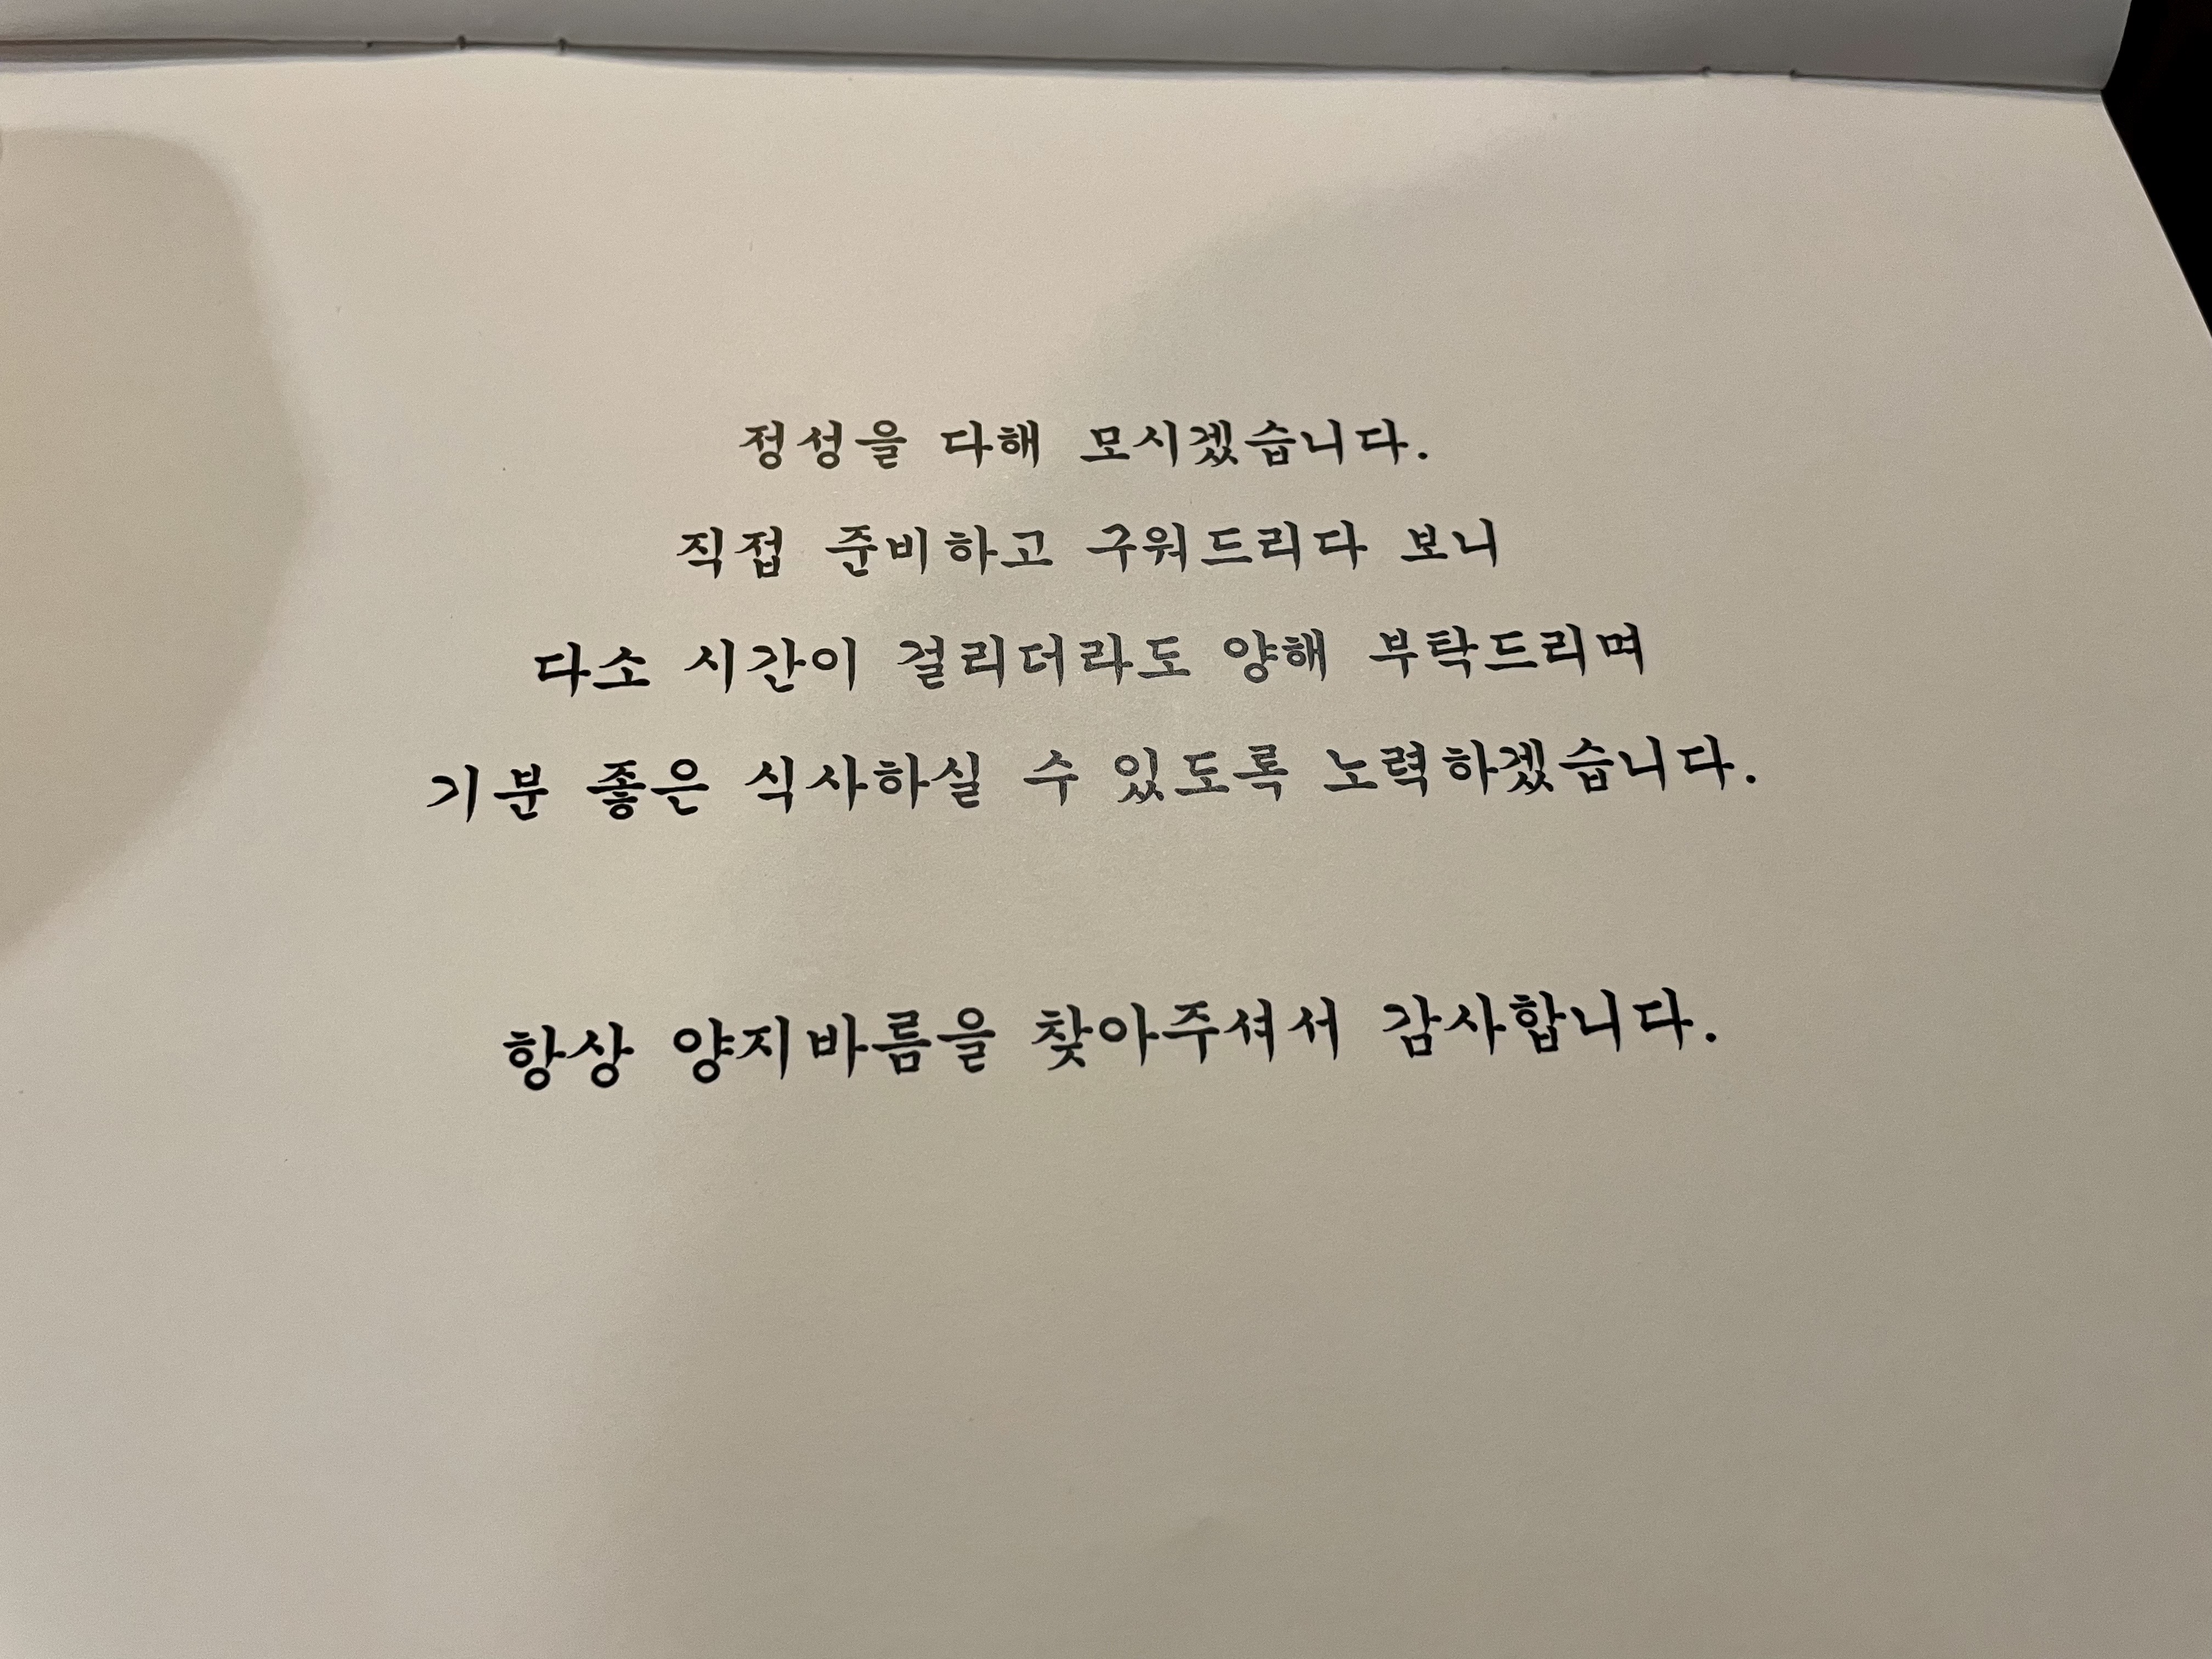 정성을 다해 모시겠습니다.
직접 준비하고 구워드리다 보니
다소 시간이 걸리더라도 양해 부탁드리며
기분 좋은 식사하실 수 있도록 노력하겠습니다.
항상 양지바름을 찾아주셔서 감사합니다.